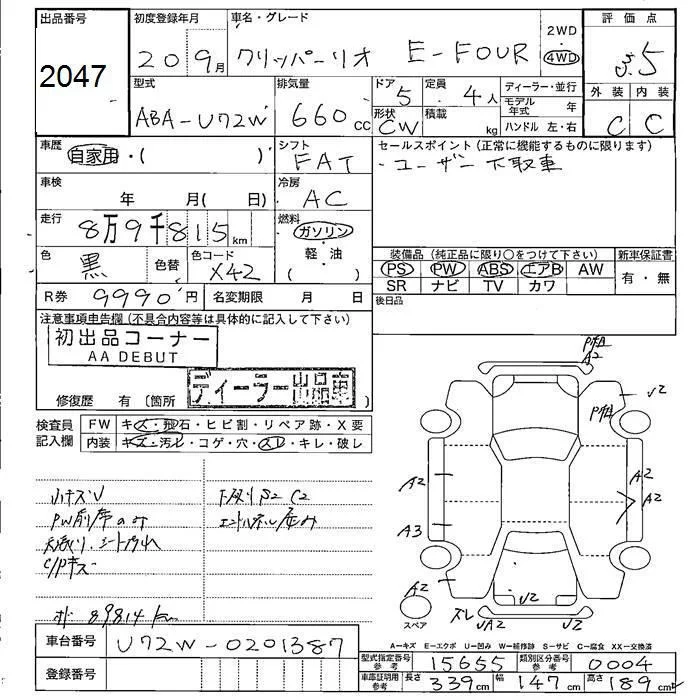 出品番号
2047
初度登録年月
20 9月
車名・グレード
クリッパーリオ E-FOUR
2WD
4WD
評価点
3.5
外装 内装
C C
型式
ABA-U72W
排気量
660 cc
ドア 5
形状 CW
定員 4人
積載 kg
ディーラー・並行
モデル年式 年
ハンドル 左・右
車歴
自家用・( )
シフト
FAT
セールスポイント (正常に機能するものに限ります)
・ユーザー下取車
車検
年 月( 日)
冷房
AC
走行
8万9千815 km
燃料
ガソリン
軽油
( )
色
黒
色替
色コード
X42
装備品 (純正品に限り○をつけて下さい)
PS PW ABS エアB AW
SR ナビ TV カワ
新車保証書
有・無
R券 9990円
名変期限 月 日
後日品
注意事項申告欄 (不具合内容等は具体的に記入して下さい)
初出品コーナー
AA DEBUT
ディーラー出品車
修復歴 有 〔箇所 〕
検査員記入欄
FW キズ・飛石・ヒビ割・リペア跡・X要
内装 キズ・汚レ・コゲ・穴・スレ・キレ・破レ
小キズU
PW前席のみ
シート汚れ
C/Pキズ
下廻り S2 C2
89814 km
P組
A2
U2
P組
A2
A2
A2
A3
A2
U2
スレ
UA2
U2
スペア
A-キズ E-エクボ U-凹み W-補修跡 S-サビ C-腐食 XX-交換済
車台番号
U72W-0201387
登録番号
型式指定番号 参考 15655
類別区分番号 参考 0004
車庫証明用 参考 長さ 339cm 幅 147cm 高さ 189cm